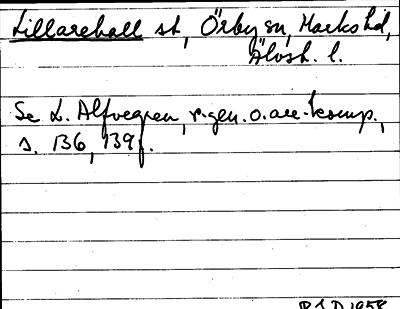 Lillarehall st, Örby sn, Marks hd,
Älvsb. l.
Se L. Alfvegren, r-gen. o. are-komp.,
s. 136, 139 f.
1958